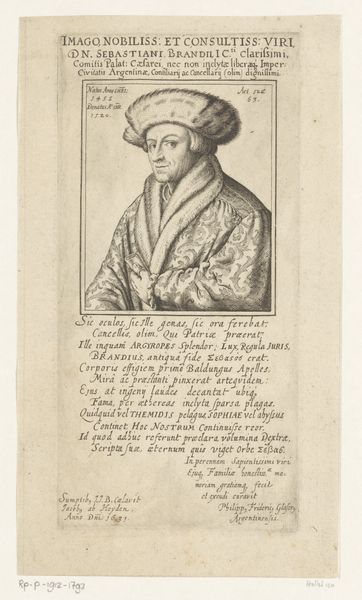 IMAGO NOBILISS: ET CONSULTISS: VIRI
DN. SEBASTIANI BRANDII IC.ti clarissimi,
Comitis Palat: Cæsarei, nec non inclytæ liberæq. Imper:
Civitatis Argentinæ, Consiliarij ac Cancellarij (olim) dignissimi.
Natus Anno
Aet. suæ
63.
Denatus
1520.
Sic oculos, sic Ille genas, sic ora ferebat:
Cancellis, olim, Qui Patriæ præerat,
Ille inquam ARGYROPES Splendor; Lux, Regula JURIS,
BRANDIUS, antiquâ fide Σεβασὸς erat.
Corporis effigiem primò Baldungus Apelles,
Mirâ ac præstanti pinxerat arte quidem:
Ejus at ingeny laudes decantat ubiq,
Fama, per æthereas inclyta sparsa plagas.
Quidquid vel THEMIDIS pelagus, SOPHIAE vel abyssus
Continet Hoc NOSTRUM Continuisse reor.
Id quod adhuc referunt præclara volumina Dextræ,
Scripta suæ, æternum quis viget Orbe Σέβας.
In perennem Sapientissimi viri
Ejusq. Familiæ honestiss.æ me-
moriam gratamq, fecit
et excudi curavit
Philipp. Frideric, Glaser,
Argentinensis.
Sumptib, J.J.B. Cælavit
Jacob, ab Heyden,
Anno Dni. 1631.
RP-P-1912-1793